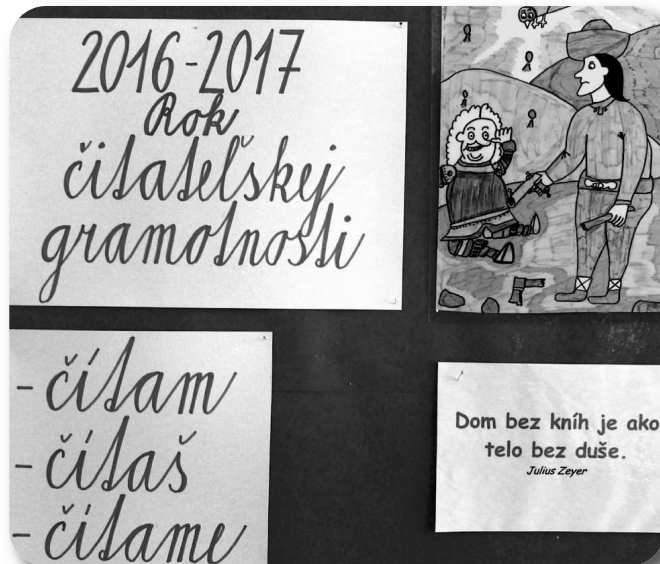 2016-2017
Rok
čitateľskej
gramotnosti
- čítam
- čítaš
- čítame
Dom bez kníh je ako
telo bez duše.
Julius Zeyer